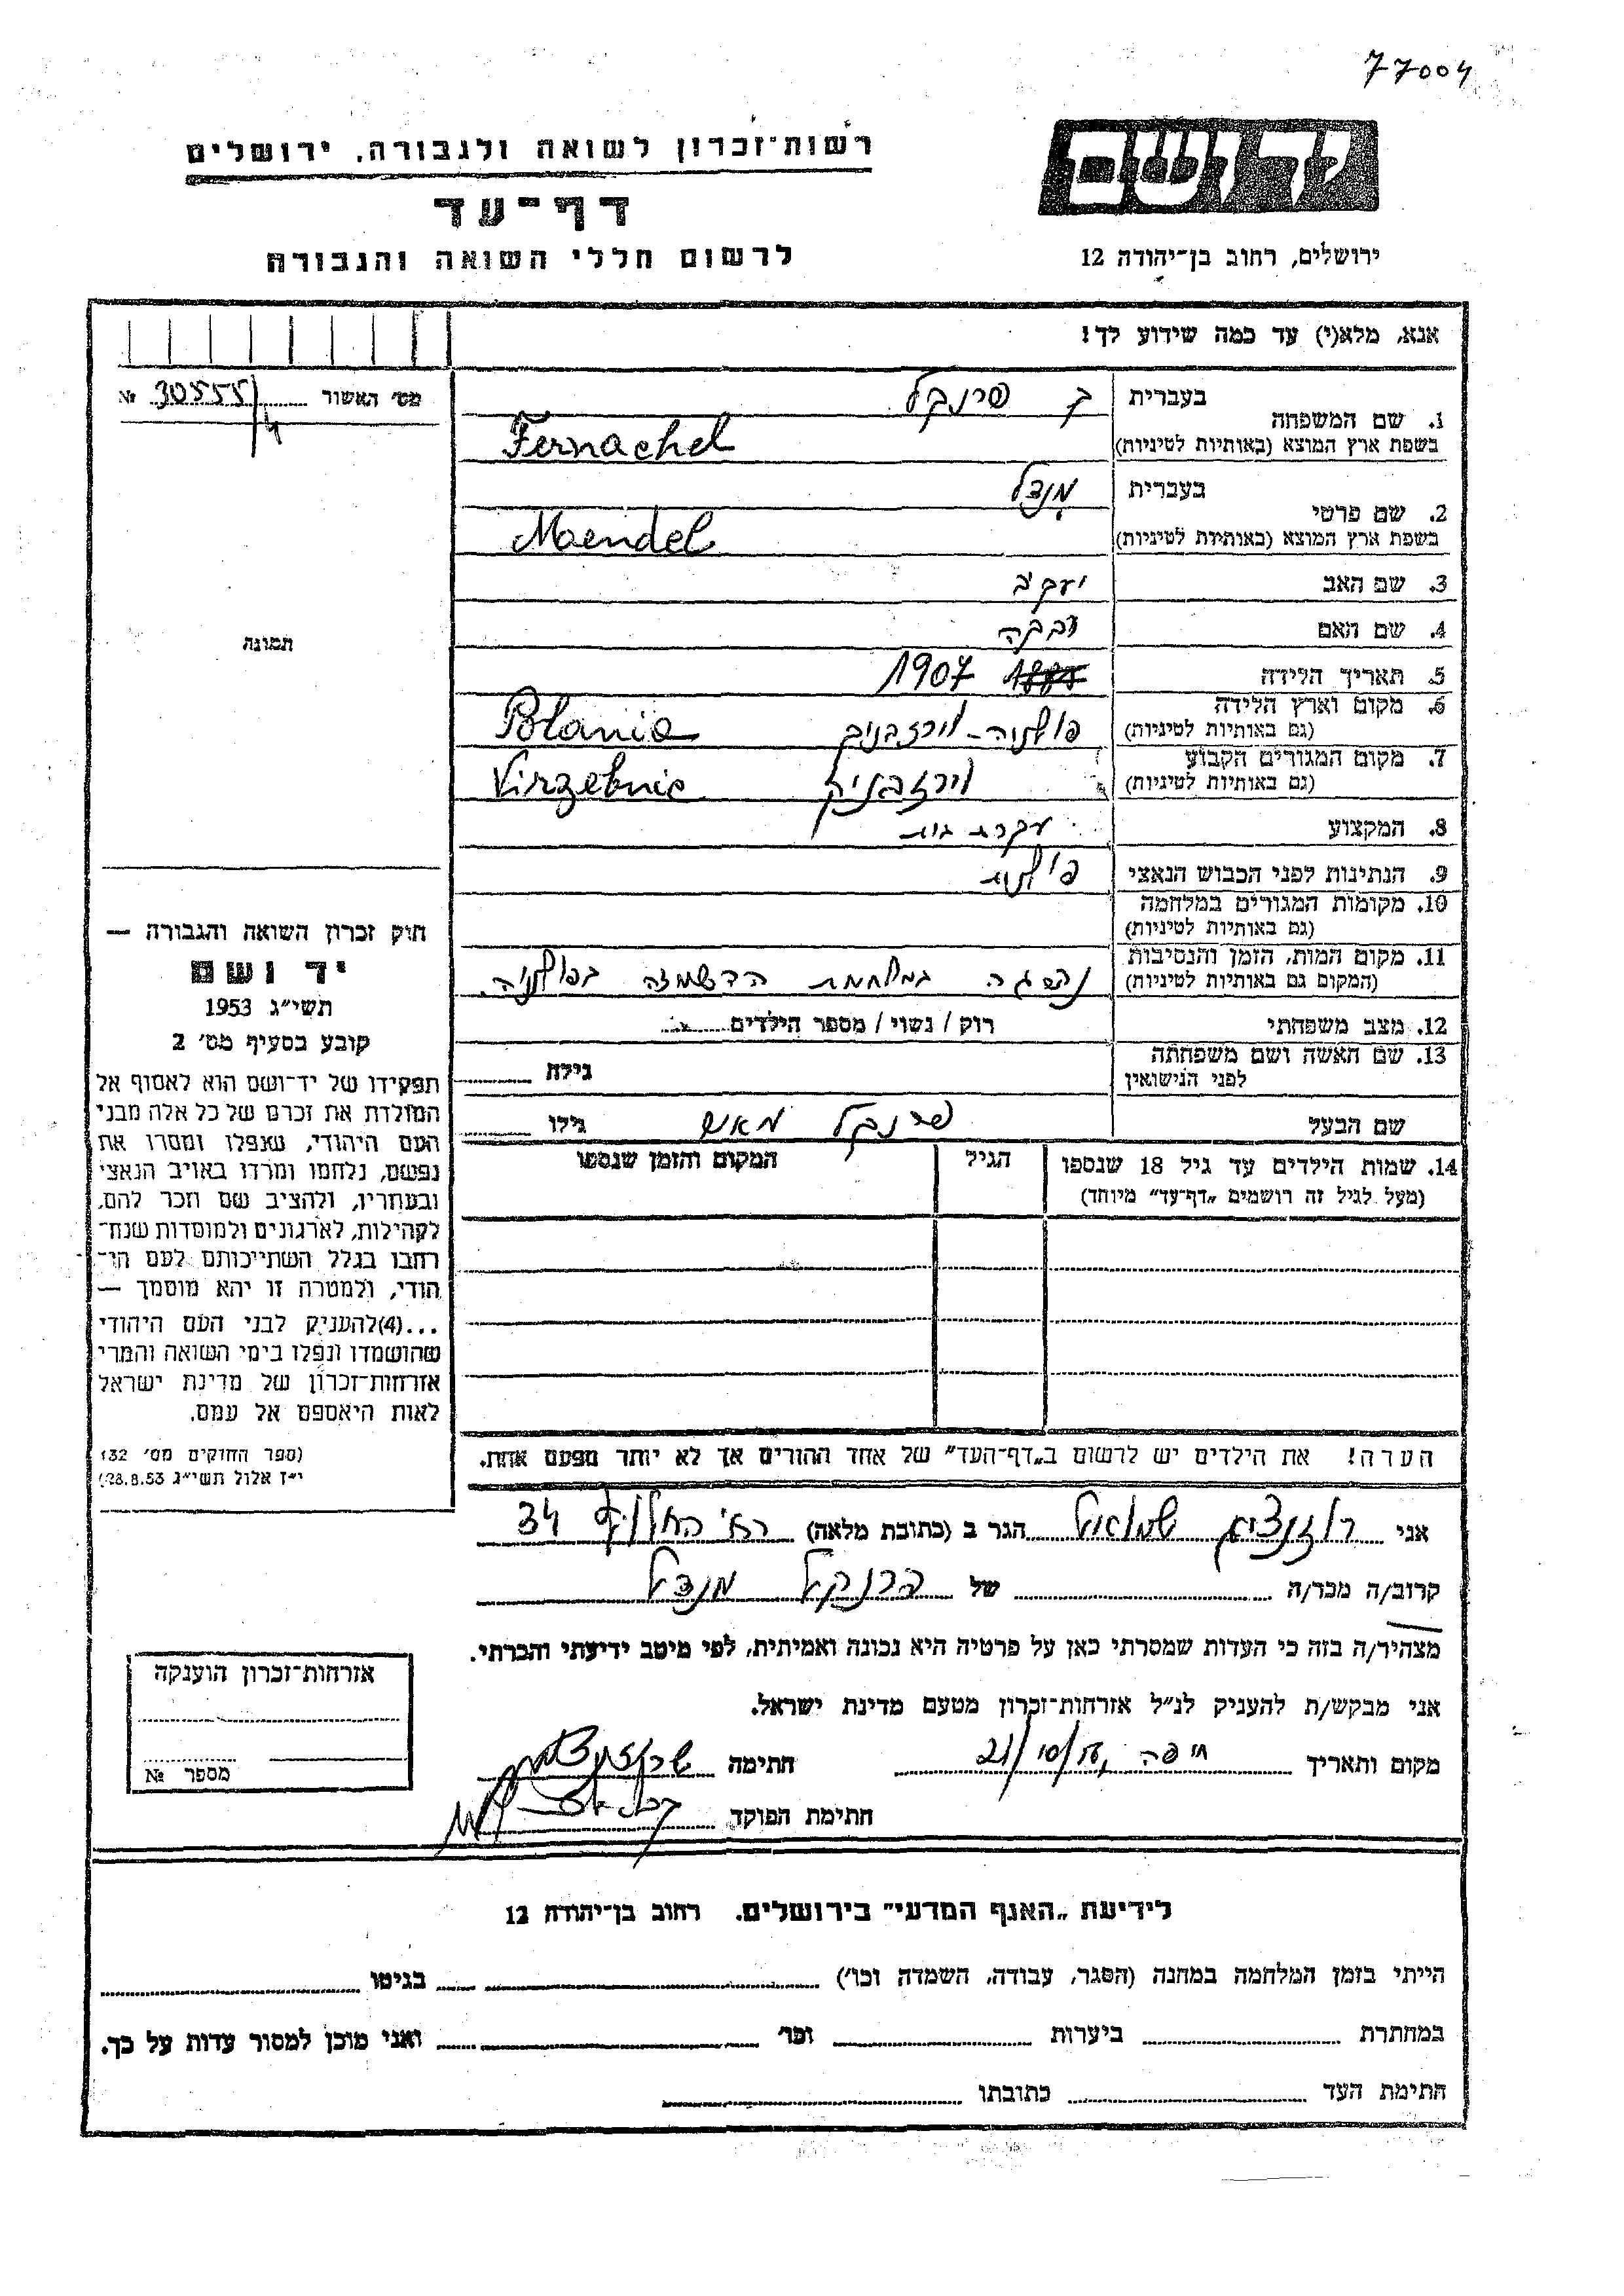 77004
רשות־זכרון לשואה ולגבורה, ירושלים
דף־עד
לרשום חללי השואה והגבורה
יד ושם
ירושלים, רחוב בן־יהודה 12
אנא, מלא(י) עד כמה שידוע לך!
מס׳ האשור 30555/4 №
תמונה
1. שם המשפחה
בעברית פרנקל
בשפת ארץ המוצא (באותיות לטיניות) Fernachel
2. שם פרטי
בעברית מנדל
בשפת ארץ המוצא (באותיות לטיניות) Maendel
3. שם האב יעקב
4. שם האם
5. תאריך הלידה 1907
6. מקום וארץ הלידה
(גם באותיות לטיניות) פולניה - וירזבניק Polania
7. מקום המגורים הקבוע
(גם באותיות לטיניות) וירזבניק Virzebnic
8. המקצוע עקרת בית
9. הנתינות לפני הכבוש הנאצי פולנית
10. מקומות המגורים במלחמה
(גם באותיות לטיניות)
11. מקום המות, הזמן והנסיבות
(המקום גם באותיות לטיניות) נספתה במלחמת ההשמדה בפולניה.
12. מצב משפחתי רוק / נשוי / מספר הילדים
13. שם האשה ושם משפחתה
לפני הנישואין גילה
שם הבעל פרנקל גילו
14. שמות הילדים עד גיל 18 שנספו
(מעל לגיל זה רושמים „דף־עד״ מיוחד)
הגיל
המקום והזמן שנספו
חוק זכרון השואה והגבורה —
יד ושם
תשי״ג 1953
קובע בסעיף מס׳ 2
תפקידו של יד־ושם הוא לאסוף אל
המולדת את זכרם של כל אלה מבני
העם היהודי, שנפלו ומסרו את
נפשם, נלחמו ומרדו באויב הנאצי
ובעוזריו, ולהציב שם וזכר להם,
לקהילות, לארגונים ולמוסדות שנח־
רבו בגלל השתייכותם לעם הי־
הודי, ולמטרה זו יהא מוסמך —
...(4) להעניק לבני העם היהודי
שהושמדו ונפלו בימי השואה והמרי
אזרחות־זכרון של מדינת ישראל
לאות היאספם אל עמם.
(ספר החוקים מס׳ 132
י״ז אלול תשי״ג 28.8.53)
הערה! את הילדים יש לרשום ב„דף־העד״ של אחד ההורים אך לא יותר מפעם אחת.
אני רוזנצויג שמואל הגר ב (כתובת מלאה) רח׳ החלוץ 34
קרוב/ה מכר/ה של פרנקל מנדל
מצהיר/ה בזה כי העדות שמסרתי כאן על פרטיה היא נכונה ואמיתית, לפי מיטב ידיעתי והכרתי.
אני מבקש/ת להעניק לנ״ל אזרחות־זכרון מטעם מדינת ישראל.
מקום ותאריך חיפה 21/10/ חתימה
חתימת הפוקד
אזרחות־זכרון הוענקה
מספר №
לידיעת „האגף המדעי״ בירושלים. רחוב בן־יהודה 12
הייתי בזמן המלחמה במחנה (הסגר, עבודה, השמדה וכו׳) בגיטו
במחתרת ביערות וכו׳ ואני מוכן למסור עדות על כך.
חתימת העד כתובתו